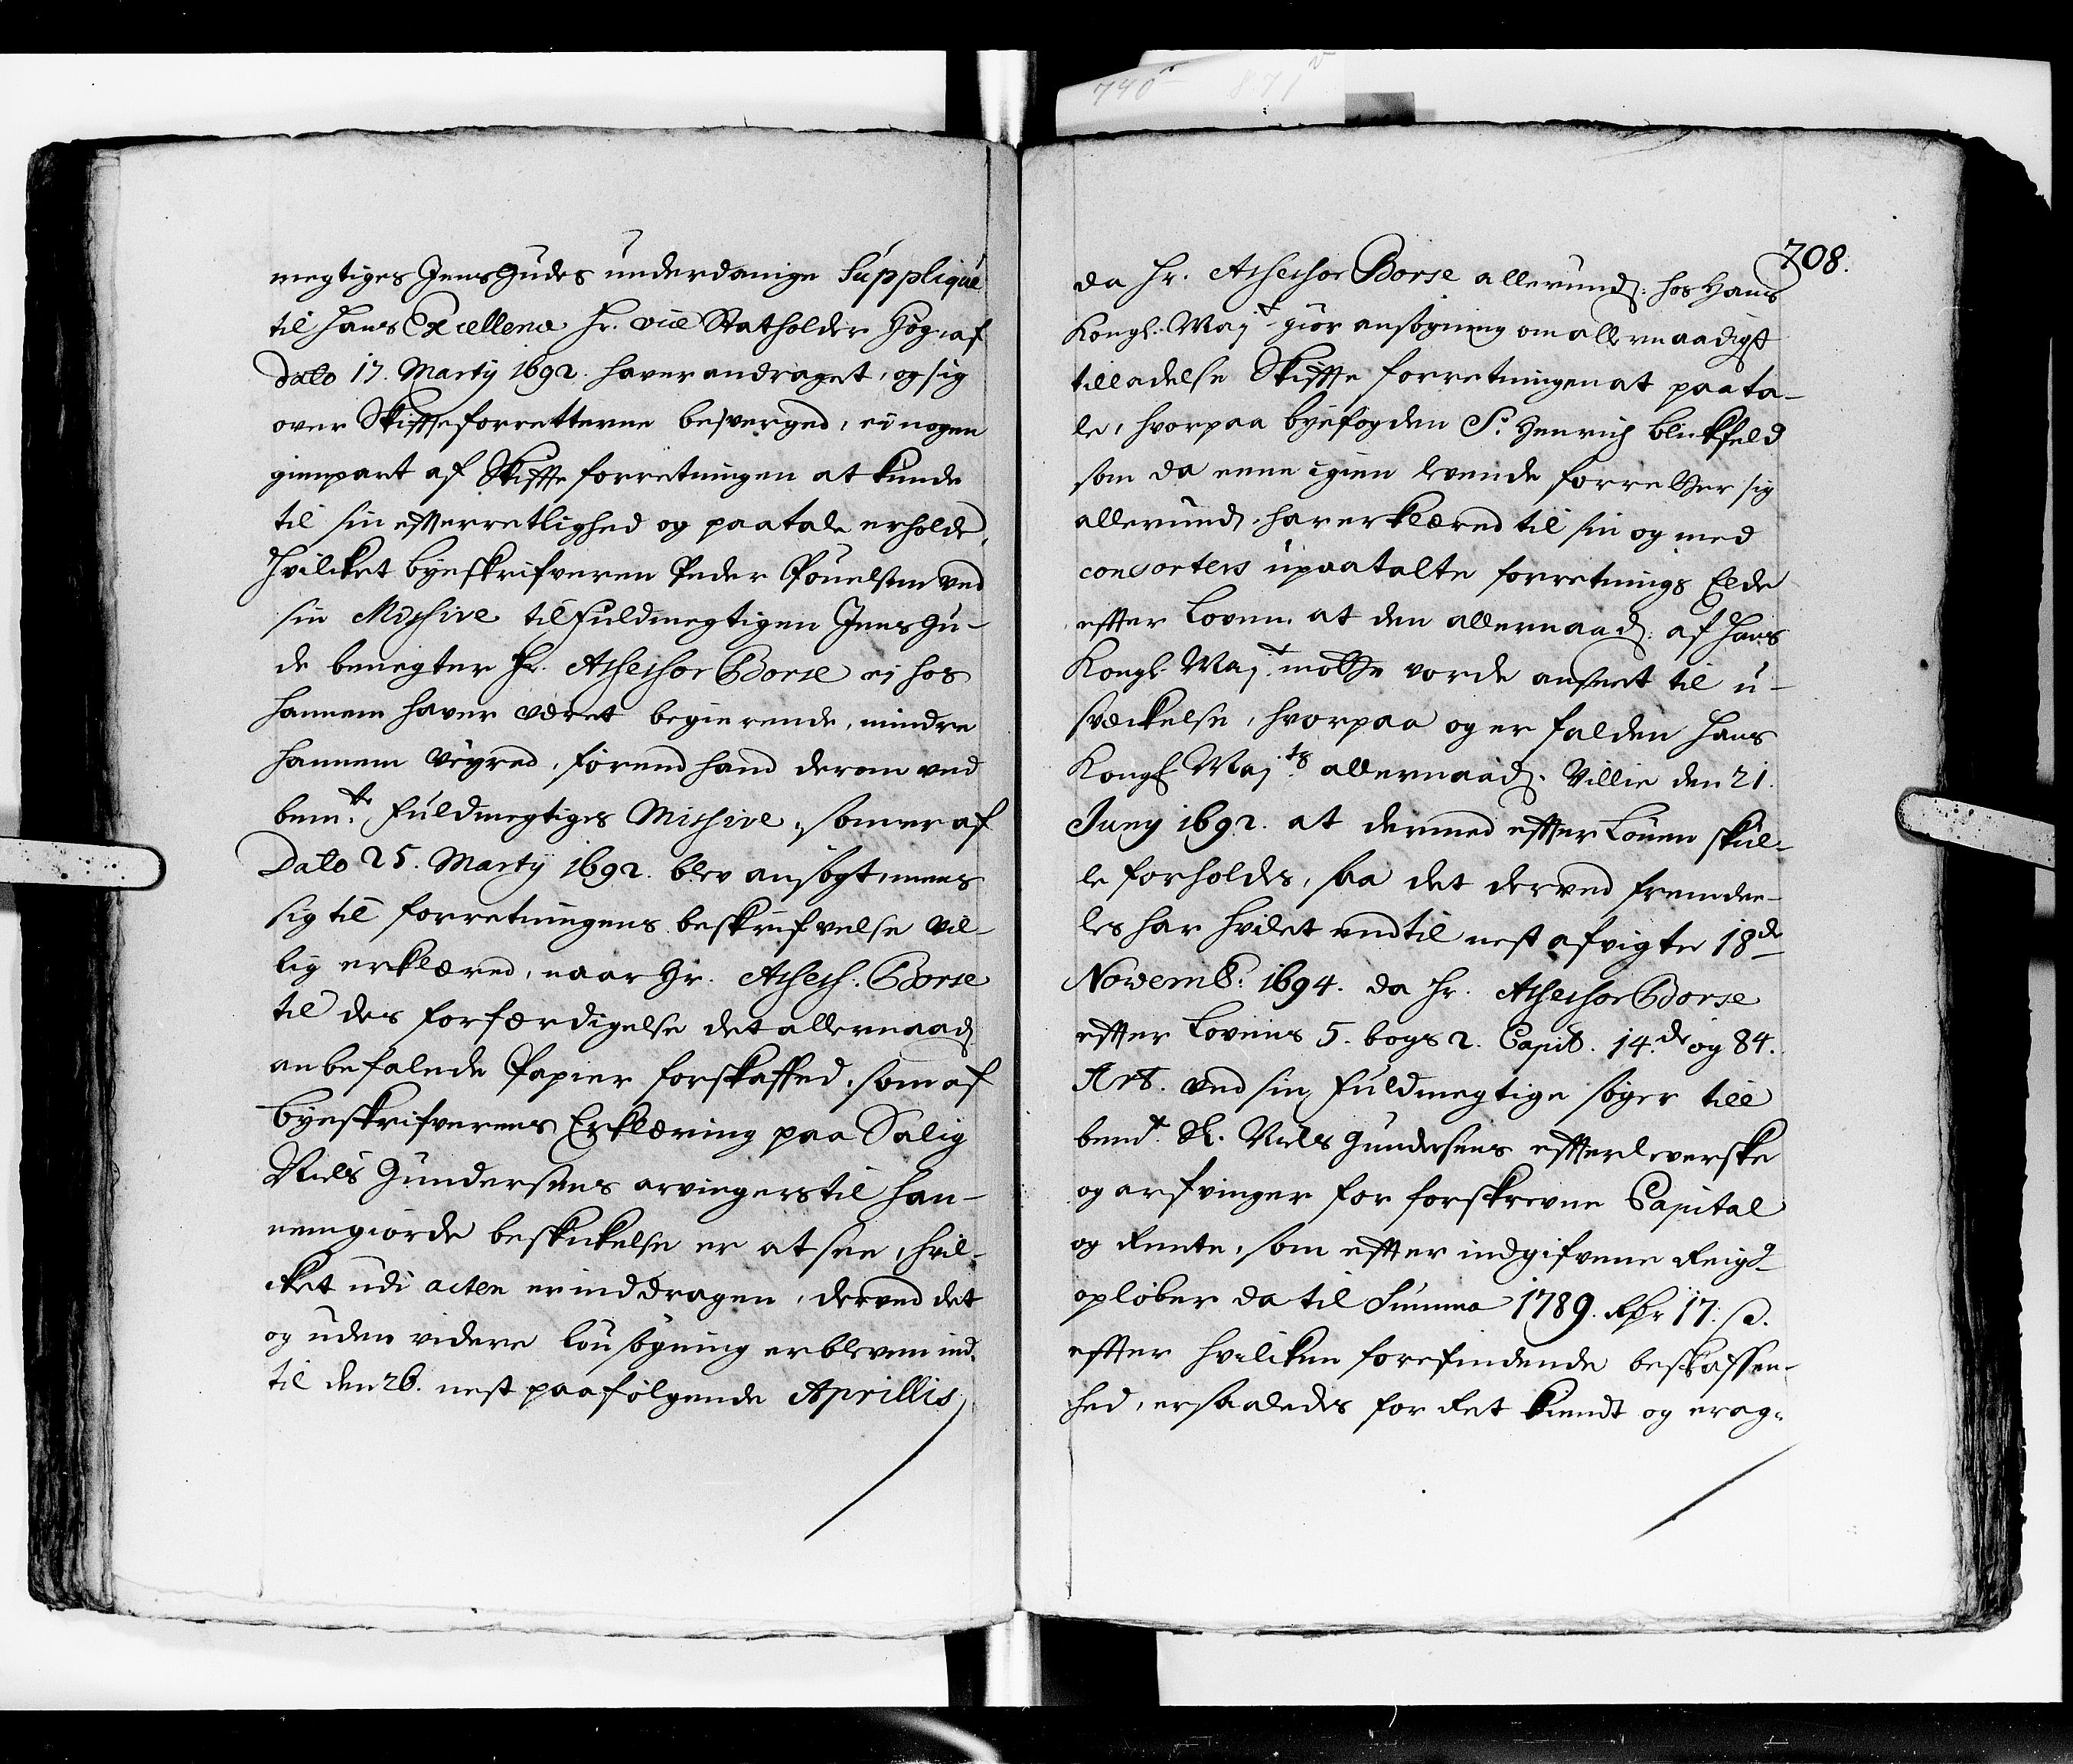 megtiges Jens Gudes underdanige Supplique
til Hans Excellence Hr. vice Statholder Høg af
Dato 17. Marty 1692. haver andraget, og sig
over Skiffteforretterne besverged, ei nogen
gienpart af Skiffte forretningen at kunde
til sin effterretlighed og paatale erholde,
Hvilcket byeskrifveren Peder Pouelsen ved
sin Missive til Fuldmegtigen Jens Gu-
de benegter Hr. Assessor Borse ei hos
hannem haver været begierende, mindre
hannem veyred, førend hand derom ved
bem.te Fuldmegtiges Missive, som er af
Dato 25. Marty 1692. blev ansøgt, mens
sig til forretningens beskrifvelse vil-
lig erklæred, naar Hr. Assess. Borse
til des forfærdigelse det allernaad.
anbefalede Papier forskaffed, som af
byeskrifverens Erklæring paa Salig
Niels Gundersens arvingers til han-
nem giorde beskickelse er at see, hvil-
cket udi acten er inddragen, derved det
og uden videre lou søgning er bleven ind-
til den 26. nest paafølgende Aprillis,
740 r 871 v
708.
da Hr. Assessor Borse allerund. hos Hans
Kongl. May.t giør ansøgning om allernaadigst
tilladelse Skiffte forretningen at paata-
le, hvorpaa byefogden Sr. Henrich Blickfeld
som da enne igien levende forretter sig
allerund. har erklæred til sin og med
consorters upaatalte forretnings Elde
effter Loven, at den allernaad. af Hans
Kongl. May.t motte vorde anseet til u-
svæckelse, hvorpaa og er falden Hans
Kongl. May.ts allernaad. Villie den 21.
Juny 1692. at dermed effter Louen skul-
le forholdes, saa det derved fremdee-
les har hvilet indtil nest afvigte 18de
Novemb: 1694. da Hr. Assessor Borse
effter Lovens 5. bogs 2. Capit. 14.de og 84.
Art. ved sin Fuldmegtige søger till
bem.t Sl. Niels Gundersens effterleverske
og arfvinger for forskrevne Capital
og Rente, som effter indgifvene Reig.g
opløber da til Summa 1789. Rdr 17. s.
effter hvilcken forefindende beskaffen-
hed, er saaledes for Ret kiendt og erag-